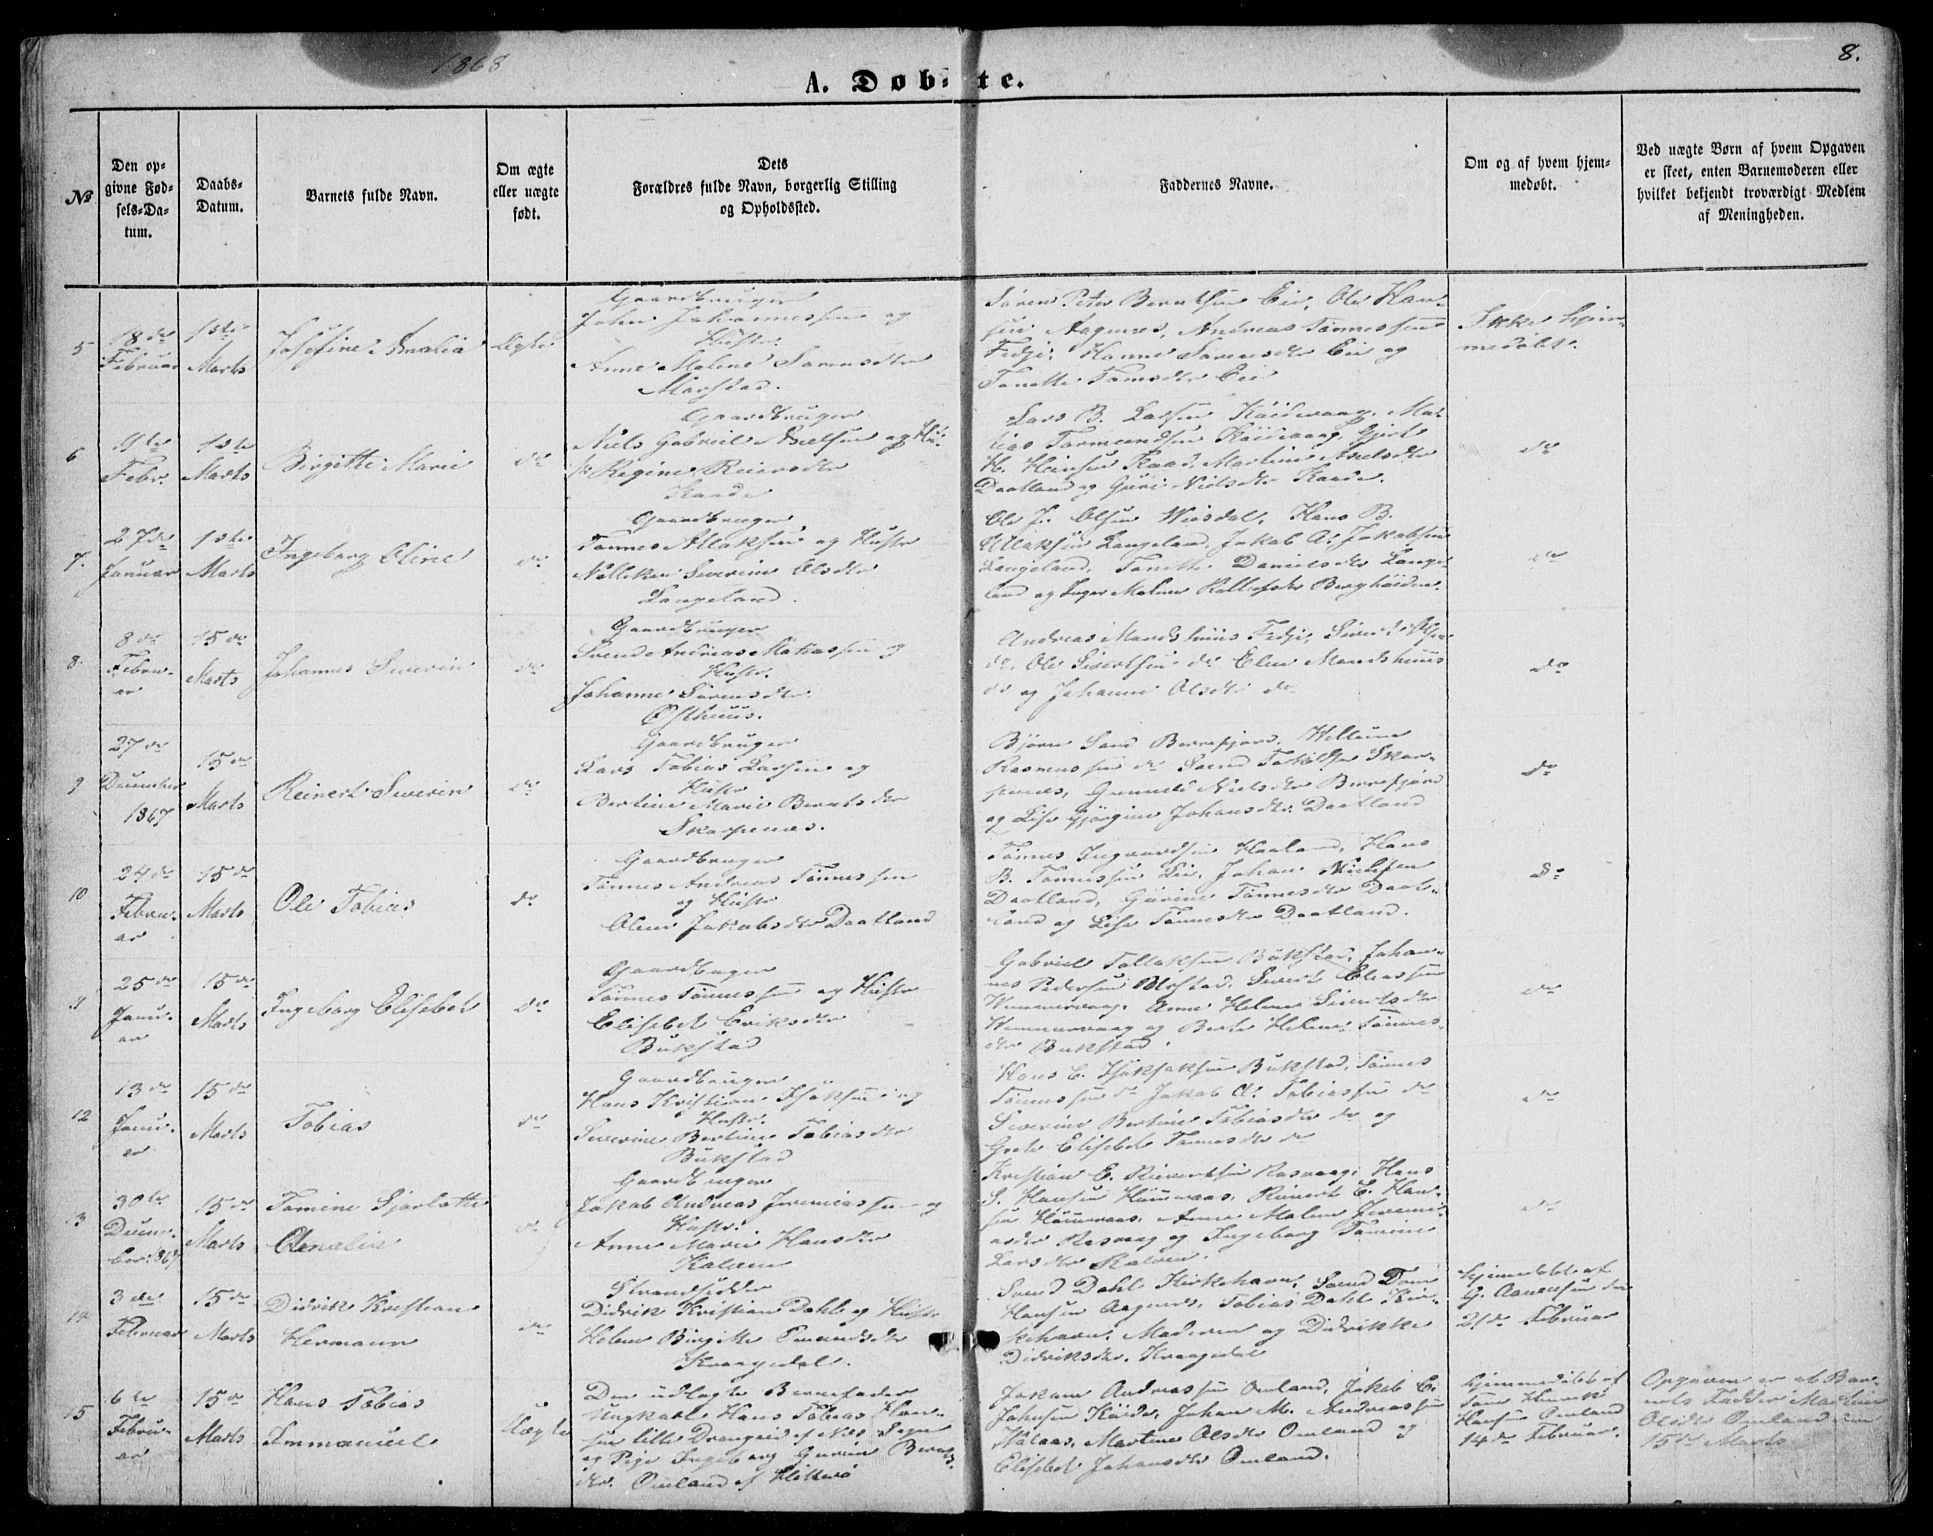 1868
8.
A. Døbte.
№
Den op-
givne Fød-
sels-Da-
tum.
Daabs-
Datum.
Barnets fulde Navn.
Om ægte
eller uægte
født.
Dets
Forældres fulde Navn, borgerlig Stilling
og Opholdssted.
Faddernes Navne.
Om og af hvem hjem-
medøbt.
Ved uægte Børn af hvem Opgaven
er skeet, enten Barnemoderen eller
hvilket bekjendt troværdigt Medlem
af Meningheden.
5
18de
Februar
1ste
Marts
Josefine Amalia
Ægte
Gaardbruger
John Johannessen og
Hustr.
Anne Malene Sørensdtr
Marstad.
Søren Peter Berntsen Eie, Ole Han-
sen Aagenes, Andreas Tønnessen
Fedje, Hanne Sørensdtr Eie og
Tonette Tomsdtr Eie
Ikke hjem-
medøbt.
6
9de
Febr.
1ste
Marts
Birgitte Marie
do
Gaardbruger
Niels Gabriel Axelsen og Hu-
str Regine Reiersdtr
Kaade
Lars B. Larsen Kõidevaag, Mat-
tias Tormundsen Kõidevaag, Gjert
H. Hansen Kaad, Martine Axelsdtr
Daatland og Guri Nielsdtr Kaade.
do
7.
27de
Januar
1ste
Marts
Ingeborg Oline
do
Gaardbruger
Tønnes Allaksen og Hustr
Severine Olsdtr
Langeland.
Ole J. Olsen Hans B.
Allaksen Langeland, Jakob A. Jakobsen
Langeland, Tonette Danielsdtr Lange-
land og Inger Malene
do
8.
8de
Febru-
ar
15de
Marts
Johannes Severin
do
Gaardbruger
Svend Andreas Matiassen og
Hustr.
Johanne Sørensdtr
Østhuus.
Andreas Mandshuus Fedje, Sivert
do, Ole Sivertsen do Elen Mandshuus
do og Johanne Olsdtr do
do
9
27de
December
1867
15de
Marts
Reinert Severin
do
Gaardbruger
Lars Tobias Larsen og
Hustr
Bertine Marie Berntsdtr
Skarpenes.
Bjørn Berrefjord, Willum
Rasmussen do Svend Torkildsen Skar-
penes, Gunnild Nielsdtr Berrefjord
og Lise Gjørgine Johansdtr Daatland
do
10
24de
Febru-
ar
15de
Marts
Ole Tobias
do
Gaardbruger
Tønnes Andreas Tønnessen
og Hustr
Olene Jakobsdtr Daatland
Tønnes Ingvardsen Haaland, Hans
B. Tønnessen Eie, Johan Nielsen
Daatland, Gurine Tønnesdtr Daat-
land og Lise Tønnesdtr Daatland.
do
11
25de
Janu-
ar
15de
Marts
Ingeborg Elisebet
do
Gaardbruger
Tønnes Tønnessen og Hustr
Elisebet Eriksdtr
Bukstad
Gabriel Tollaksen Bukstad, Johan-
nes Pedersen Sivert Eliassen
Anne Helene Sivertsdtr
og Berte Helene Tønnes-
dtr Bukstad.
do
12
13de
Janu-
ar
15de
Marts
Tobias
do
Gaardbruger
Hans Kristian Isaksen og
Hustr.
Severine Bertine Tobiasdtr
Bukstad
Hans E. Isaksen Bukstad, Tønnes
Tønnessen do Jakob A. Tobiassen do
Severine Bertine Tobiasdtr do og
Grete Elisebet Tønnesdtr do
do
13
30te
Decem-
ber 1867
15de
Marts
Tomine Sjarlotte
Amalia
do
Gaardbruger
Jakob Andreas Jeremiassen og
Hustr.
Anne Marie Hansdtr
Kalven
Kristian E. Reinertsen Rasvaag, Hans
S. Hansen Reinert E. Han-
sen Anne Malene Jeremi-
asdtr Rasvaag og Ingeborg Tomine
Larsdtr Kalven.
do
14
3die
Februar
15de
Marts
Didrik Kristian
Hermann
do
Strandsidder
Didrik Kristian Dahl og Hustr
Helene Birgitte Emundsdtr
Kraagedal.
Svend Dahl Kirkehavn, Svend Tom
Hansen Aagenes, Tobias Dahl Kir-
kehavn, og Didrikke
Didriksdtr. Kraagedal
hjemmedøbt af
G. Aanensen den
21de Februar
15
6te
Febru-
ar
15de
Marts
Hans Tobias
Immanuel
Uægte
Den udlagte Barnefader
Ungkarl Hans Tobias Han-
sen lille Drangeid af Nes Sogn
og Pige Ingeborg Gurine Bernts-
dtr. Omland af Hitterø
Jakam Andreassen Omland, Jakob E.
Johnsen Kõide, Johan M. Andreassen
Martine Olsdtr Omland og
Elisebet Johansdtr Omland.
hjemmedøbt af
Tom Henrik
Hansen Omland
14de Februar.
Opgaven er af Bar-
nets Fadder Martine
Olsdtr Omland den
15de Marts